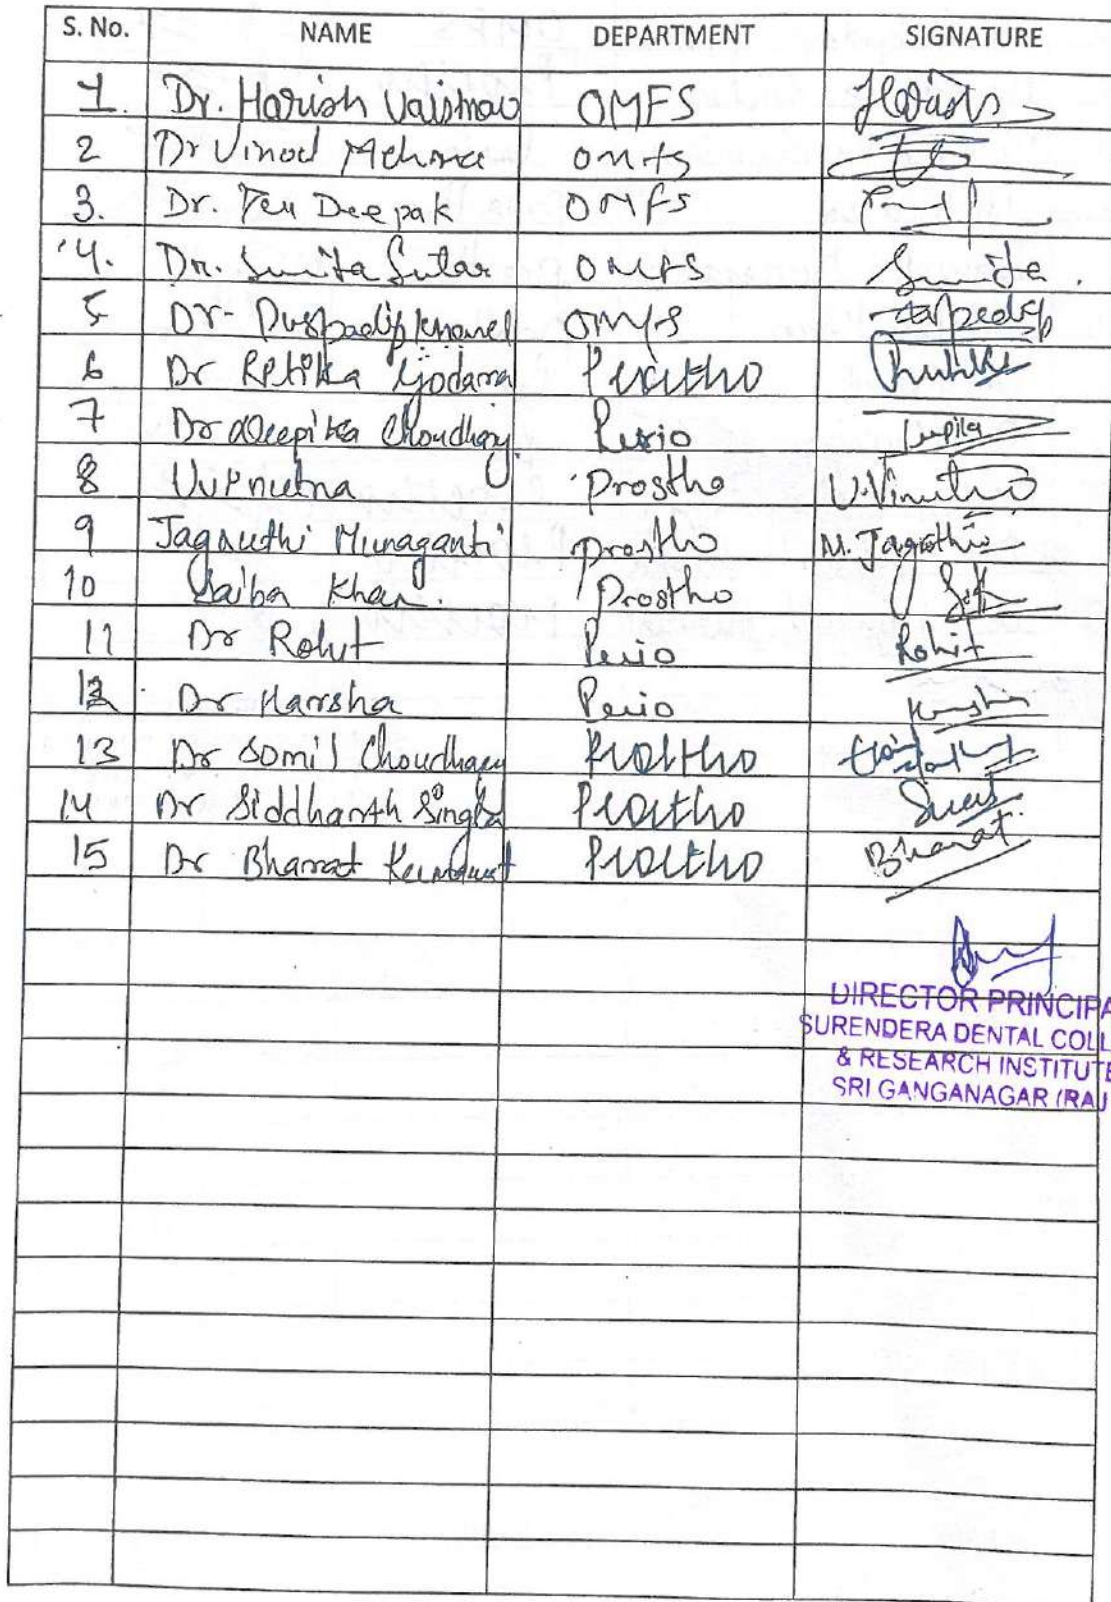 S. No. NAME DEPARTMENT SIGNATURE
1. Dr. Harish Vaishnav OMFS Harish
2 Dr Vinod Mehra OMFS
3. Dr. Deepak OMFS
4. Dr. Sunita Sutar OMFS Sunita.
5 Dr- OMFS
6 Dr Ritika Godara Prostho
7 Dr Deepika Choudhary. Perio
8 Prostho U.Vinutna
9 Jagruthi Munaganti Prostho M. Jagruthi
10 Saiba Khan. Prostho
11 Dr Rohit Perio Rohit
12 Dr Harsha Perio
13 Dr Somil Choudhary Prostho
14 Dr Siddhanth Singla Prostho
15 Dr Bharat Kumawat Prostho Bharat
DIRECTOR PRINCIPA
SURENDERA DENTAL COLL
& RESEARCH INSTITUTE
SRI GANGANAGAR (RAJ